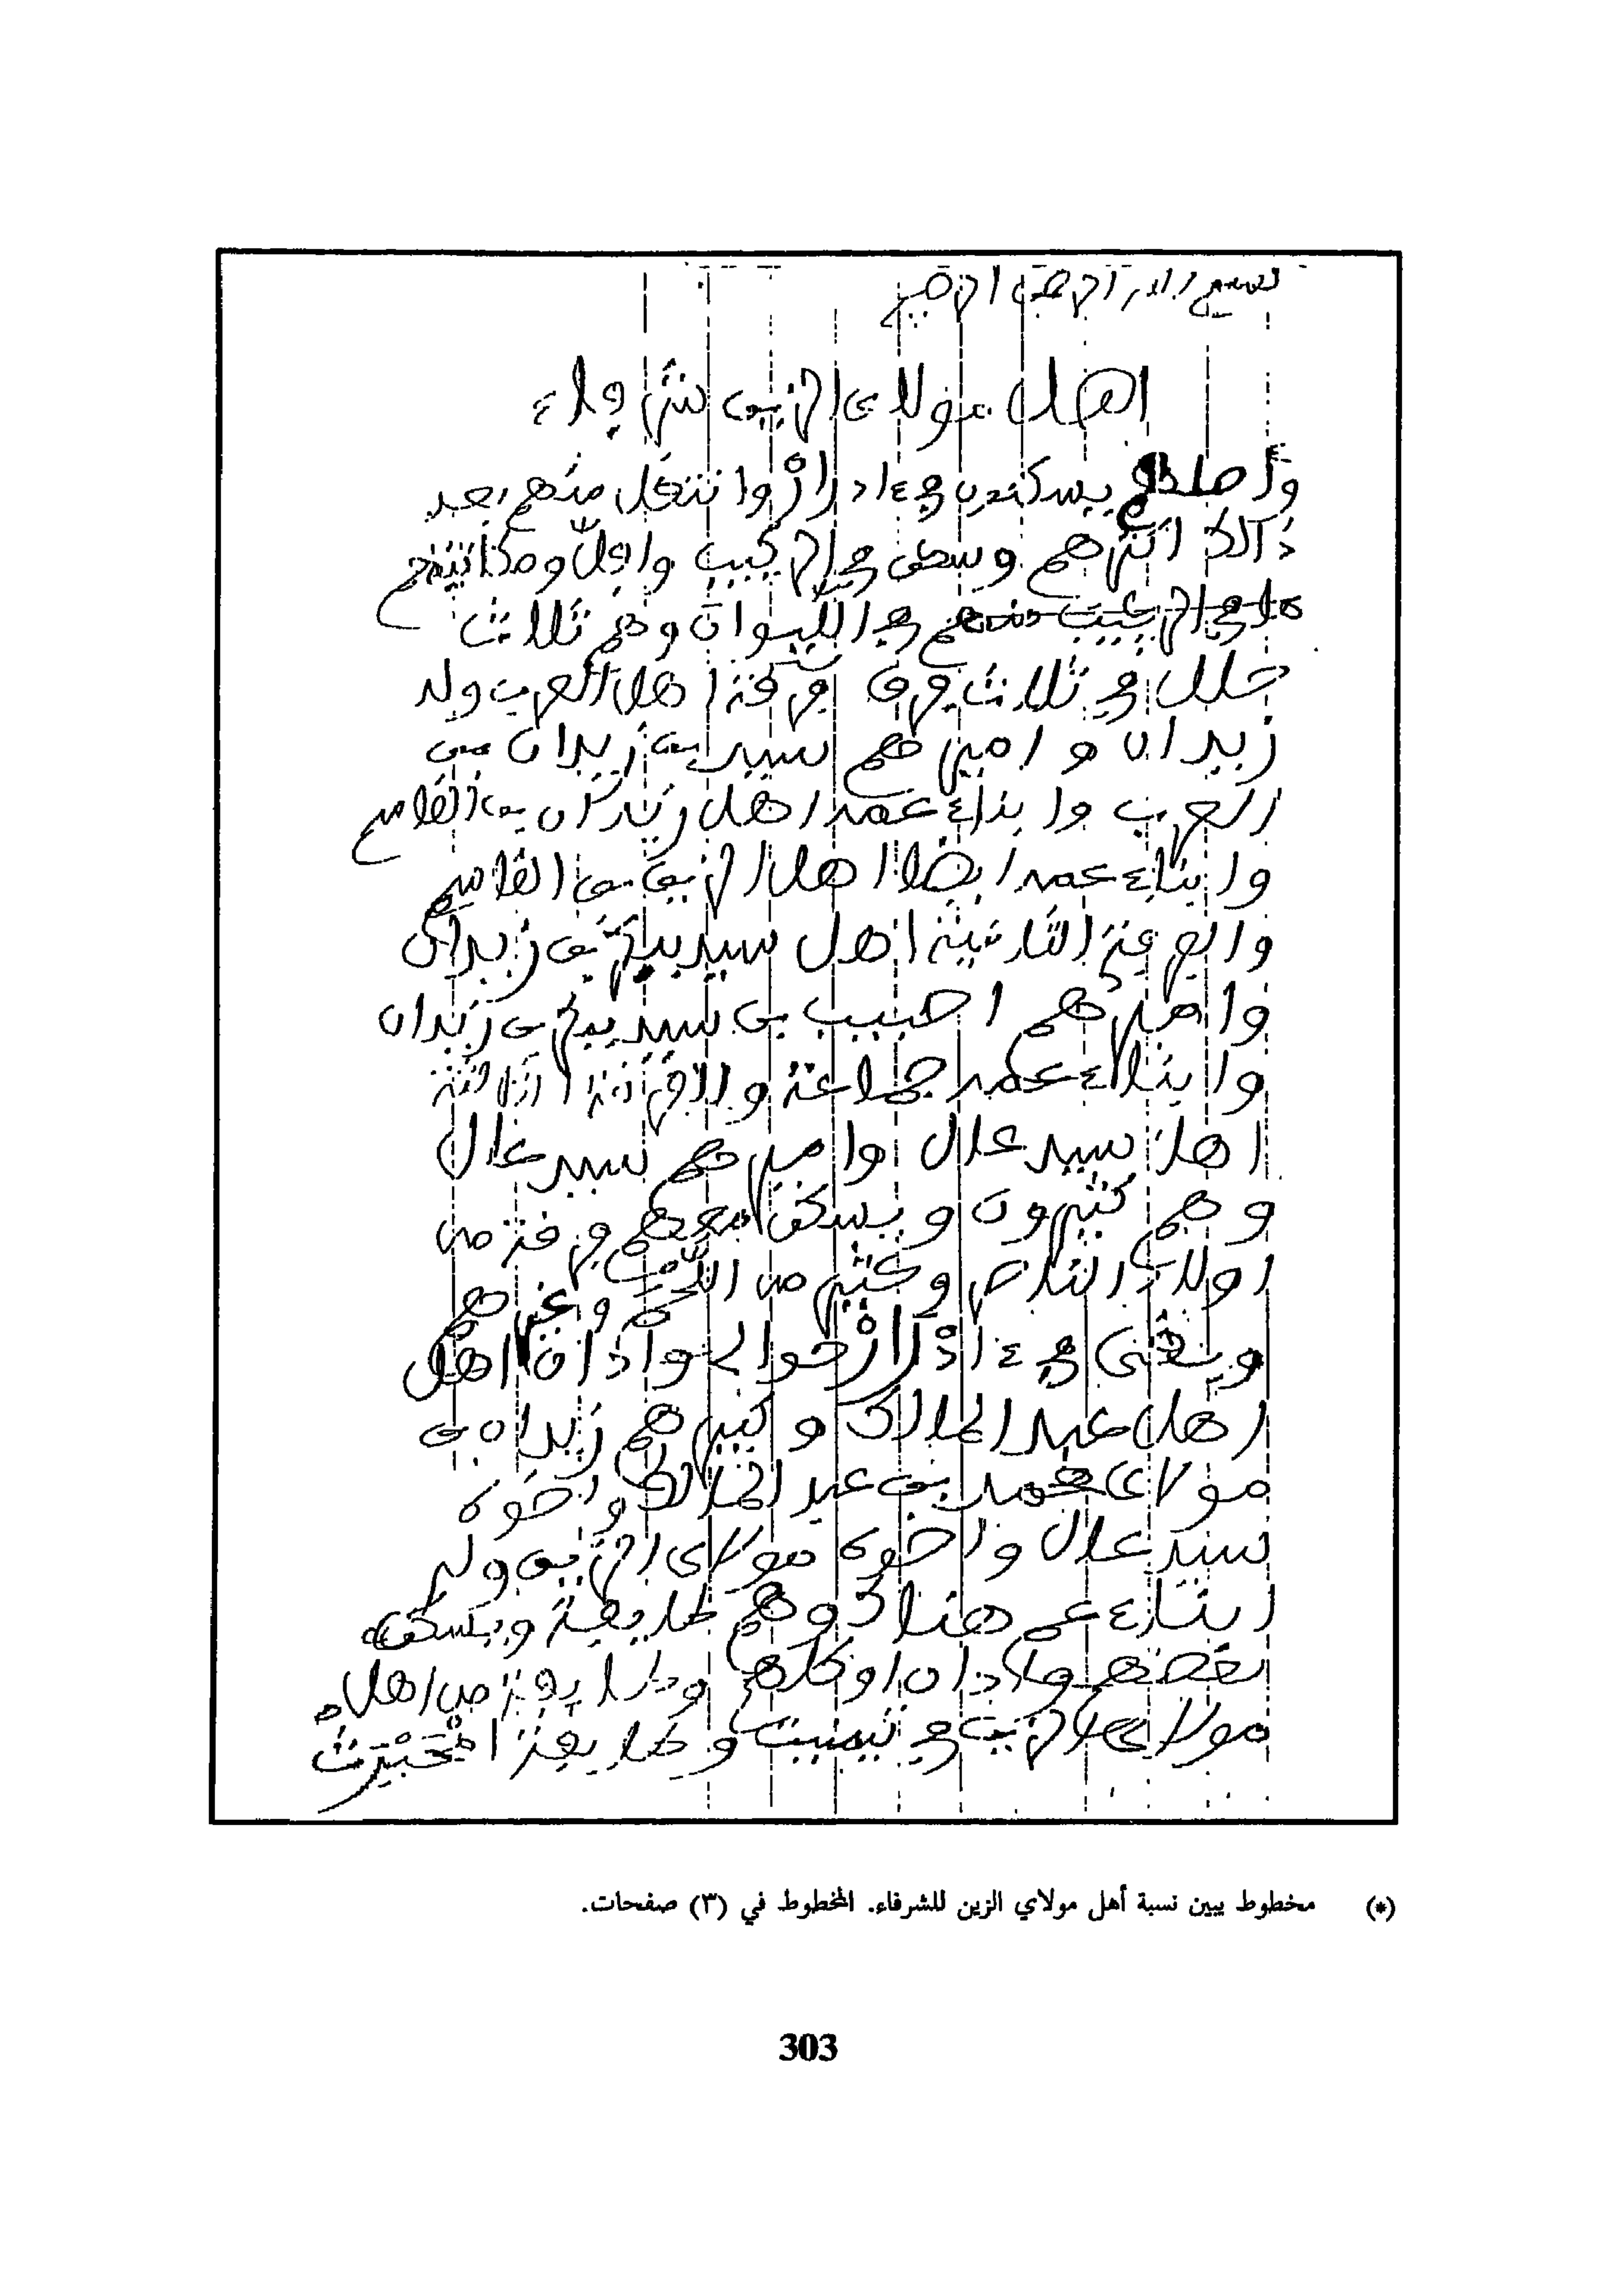 بسم الله الرحمن الرحيم
اهل مولاى الزين شرفاء
واصلهم يسكنون فى ءادرار وانتقل منهم بعد
ذالك اكثرهم وسكن فى الركيب
فى الركيب منهم فى الليوان وهم ثلاث
حلل فى ثلاث فرق فرقة اهل العرب ولد
زيدان واميرهم سيد بن زيدان بن
العرب وابناء عمه اهل زيدان بن القاسم
وابناء عمه ايضا اهل الزين بن القاسم
والفرقة الثانية اهل سيد بن زيدان
واميرهم احبيب بن سيد بن زيدان
وابناء عمه جماعة والفرقة الثالثة
اهل سيد علال واميرهم سيد علال
وهم كثيرون ويسكن معهم فرقة من
اولاد الناصر وكثير من وغيرهم
وبقى فى ءادرار حوالى وادان اهل
اهل عبد المالك وكبيرهم زيدان بن
مولاى محمد بن عبد المالك واخوه
سيد علال واخوه مولاى الزين ولهم
ابناء عم هناك وهم طايفة ويسكن
بعضهم وادان وطايفة من اهل
مولاى الزين فى وطايفة
(*) مخطوط يبين نسبة أهل مولاي الزين للشرفاء. المخطوط في (٣) صفحات.
303